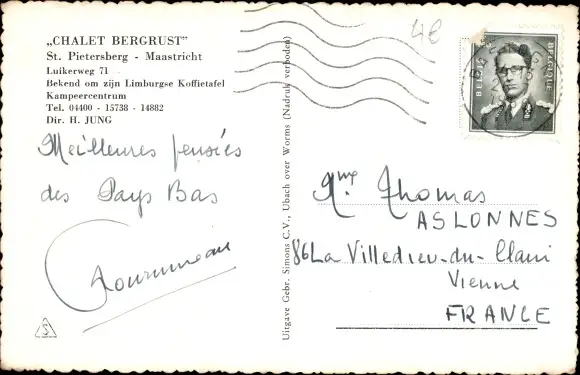 „CHALET BERGRUST”
St. Pietersberg - Maastricht
Luikerweg 71
Bekend om zijn Limburgse Koffietafel
Kampeercentrum
Tel. 04400 - 15738 - 14882
Dir. H. JUNG
Meilleures pensées
des Pays Bas
Uitgave Gebr. Simons C.V., Ubach over Worms (Nadruk verboden)
4€
BELGIE BELGIQUE
Mme Thomas
ASLONNES
86 La Villedieu-du-Clain
Vienne
FRANCE
S